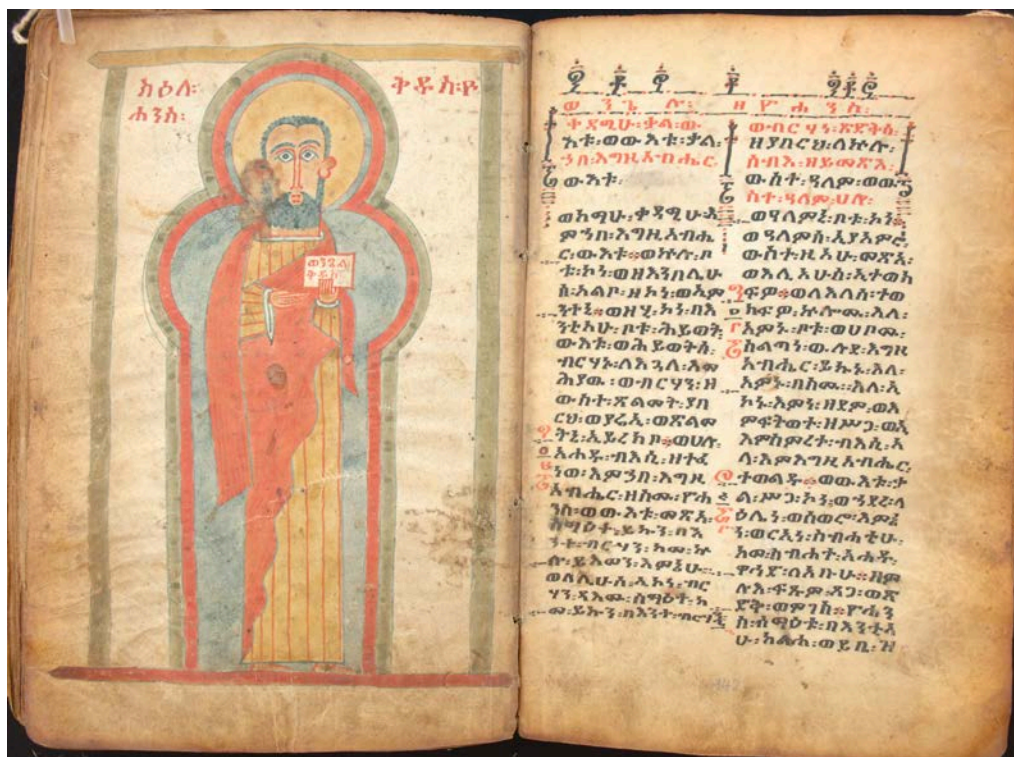 ስዕለ፡ ቅዱስ፡ዮ
ሐንስ፡
ወንጌል
ቅዱስ
ወንጌል፡ ዘዮሐንስ፡
ቀዳሚሁ፡ቃል፡ው
እቱ፡ወውእቱ፡ቃል፡
ኀበ፡እግዚአብሔር
ውእቱ፡
ወከማሁ፡ቀዳሚሁ፡እ
ምኀበ፡እግዚአብሔ
ር፡ውእቱ።ወኵሉ፡ቦ
ቱ፡ኮነ፡ወዘእንበሌሁ
ሰ፡አልቦ፡ዘኮነ፡ወኢም
ንትኒ።ወዘሂ፡ኮነ፡በእ
ንቲአሁ፡ቦቱ፡ሕይወት፡
ውእቱ፡ወሕይወትሰ፡
ብርሃኑ፡ለእጓለ፡እመ
ሕያው፡ወብርሃን፡ዘ
ውስተ፡ጽልመት፡ያበ
ርህ፡ወያሬኢ፡ወጽልመ
ትኒ፡ኢይረክቦ።ወሀሎ፡
አሐዱ፡ብእሲ፡ዘተፈ
ነወ፡እምኀበ፡እግዚ
አብሔር፡ዘስሙ፡ዮሐ
ንስ፡ወውእቱ፡መጽአ፡
ስማዕተ፡ይኩን፡በእ
ንተ፡ብርሃን፡ከመ፡ኵ
ሉ፡ይእመን፡እምኔሁ፡
ወለሊሁሰ፡ኢኮነ፡ብር
ሃነ፡ዳእሙ፡ስማዕተ፡ከ
መ፡ይኩን፡በእንተ፡ብርሃን
ወብርሃነ፡ጽድቅሰ፡
ዘያበርህ፡ለኵሉ፡
ሰብእ፡ዘይመጽእ፡
ውስተ፡ዓለም፡ወው
ስተ፡ዓለም፡ሀሎ፡
ወዓለምኒ፡ቦቱ፡ኮነ፡
ወዓለምሰ፡ኢያእመሮ፡
ውስተ፡ዚአሁ፡መጽአ፡
ወእሊአሁሰ፡ኢተወክ
ፍዎ።ወለእለሰ፡ተወ
ክፍዎ፡ኵሎሙ፡እለ፡
አምኑ፡ቦቱ፡ወሀቦሙ፡
ስልጣነ፡ውሉደ፡እግዚ
አብሔር፡ይኩኑ፡እለ፡
አምኑ፡በስሙ፡እለ፡ኢ
ኮኑ፡እምነ፡ዘደም፡ወእ
ምፍትወተ፡ዘሥጋ፡ወኢ
እምስምረተ፡ብእሲ፡አ
ላ፡እምእግዚአብሔር፡
ተወልዱ።ወውእቱ፡ቃ
ል፡ሥጋ፡ኮነ፡ወኀደረ፡ላ
ዕሌነ፡ወሰወሮ፡እምኔ
ነ፡ወርኢነ፡ስብሐቲሁ፡
ከመ፡ስብሐተ፡አሐዱ፡
ዋሕድ፡ለአቡሁ።ዘም
ሉእ፡ፍጹም፡ጸጋ፡ወጽ
ድቅ፡ወሞገስ።ዮሐን
ስ፡ሰማዕቱ፡በእንቲአ
ሁ፡ከልሐ፡ወይቤ፡ዝ